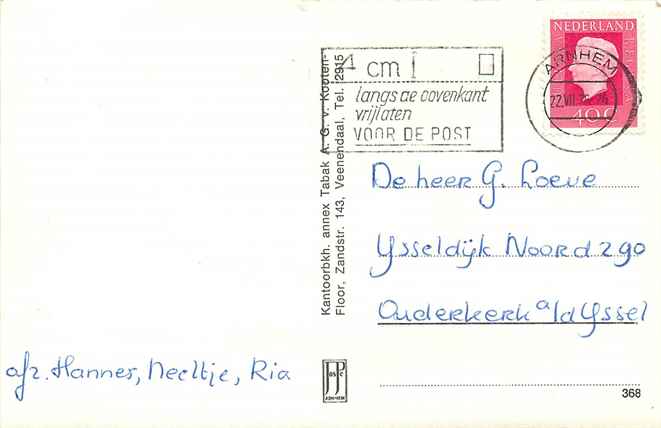 NEDERLAND
40c
ARNHEM
22.VII.
4 cm
langs de bovenkant
vrijlaten
VOOR DE POST
Kantoorbkh. annex Tabak A. G. v. Kooten-
Floor, Zandstr. 143, Veenendaal, Tel. 2915
De heer G. Loeve
Ysseldijk Noord 290
Ouderkerk a/d Yssel
afz. Hannes, Neeltje, Ria
JOSPC
ARNHEM
368